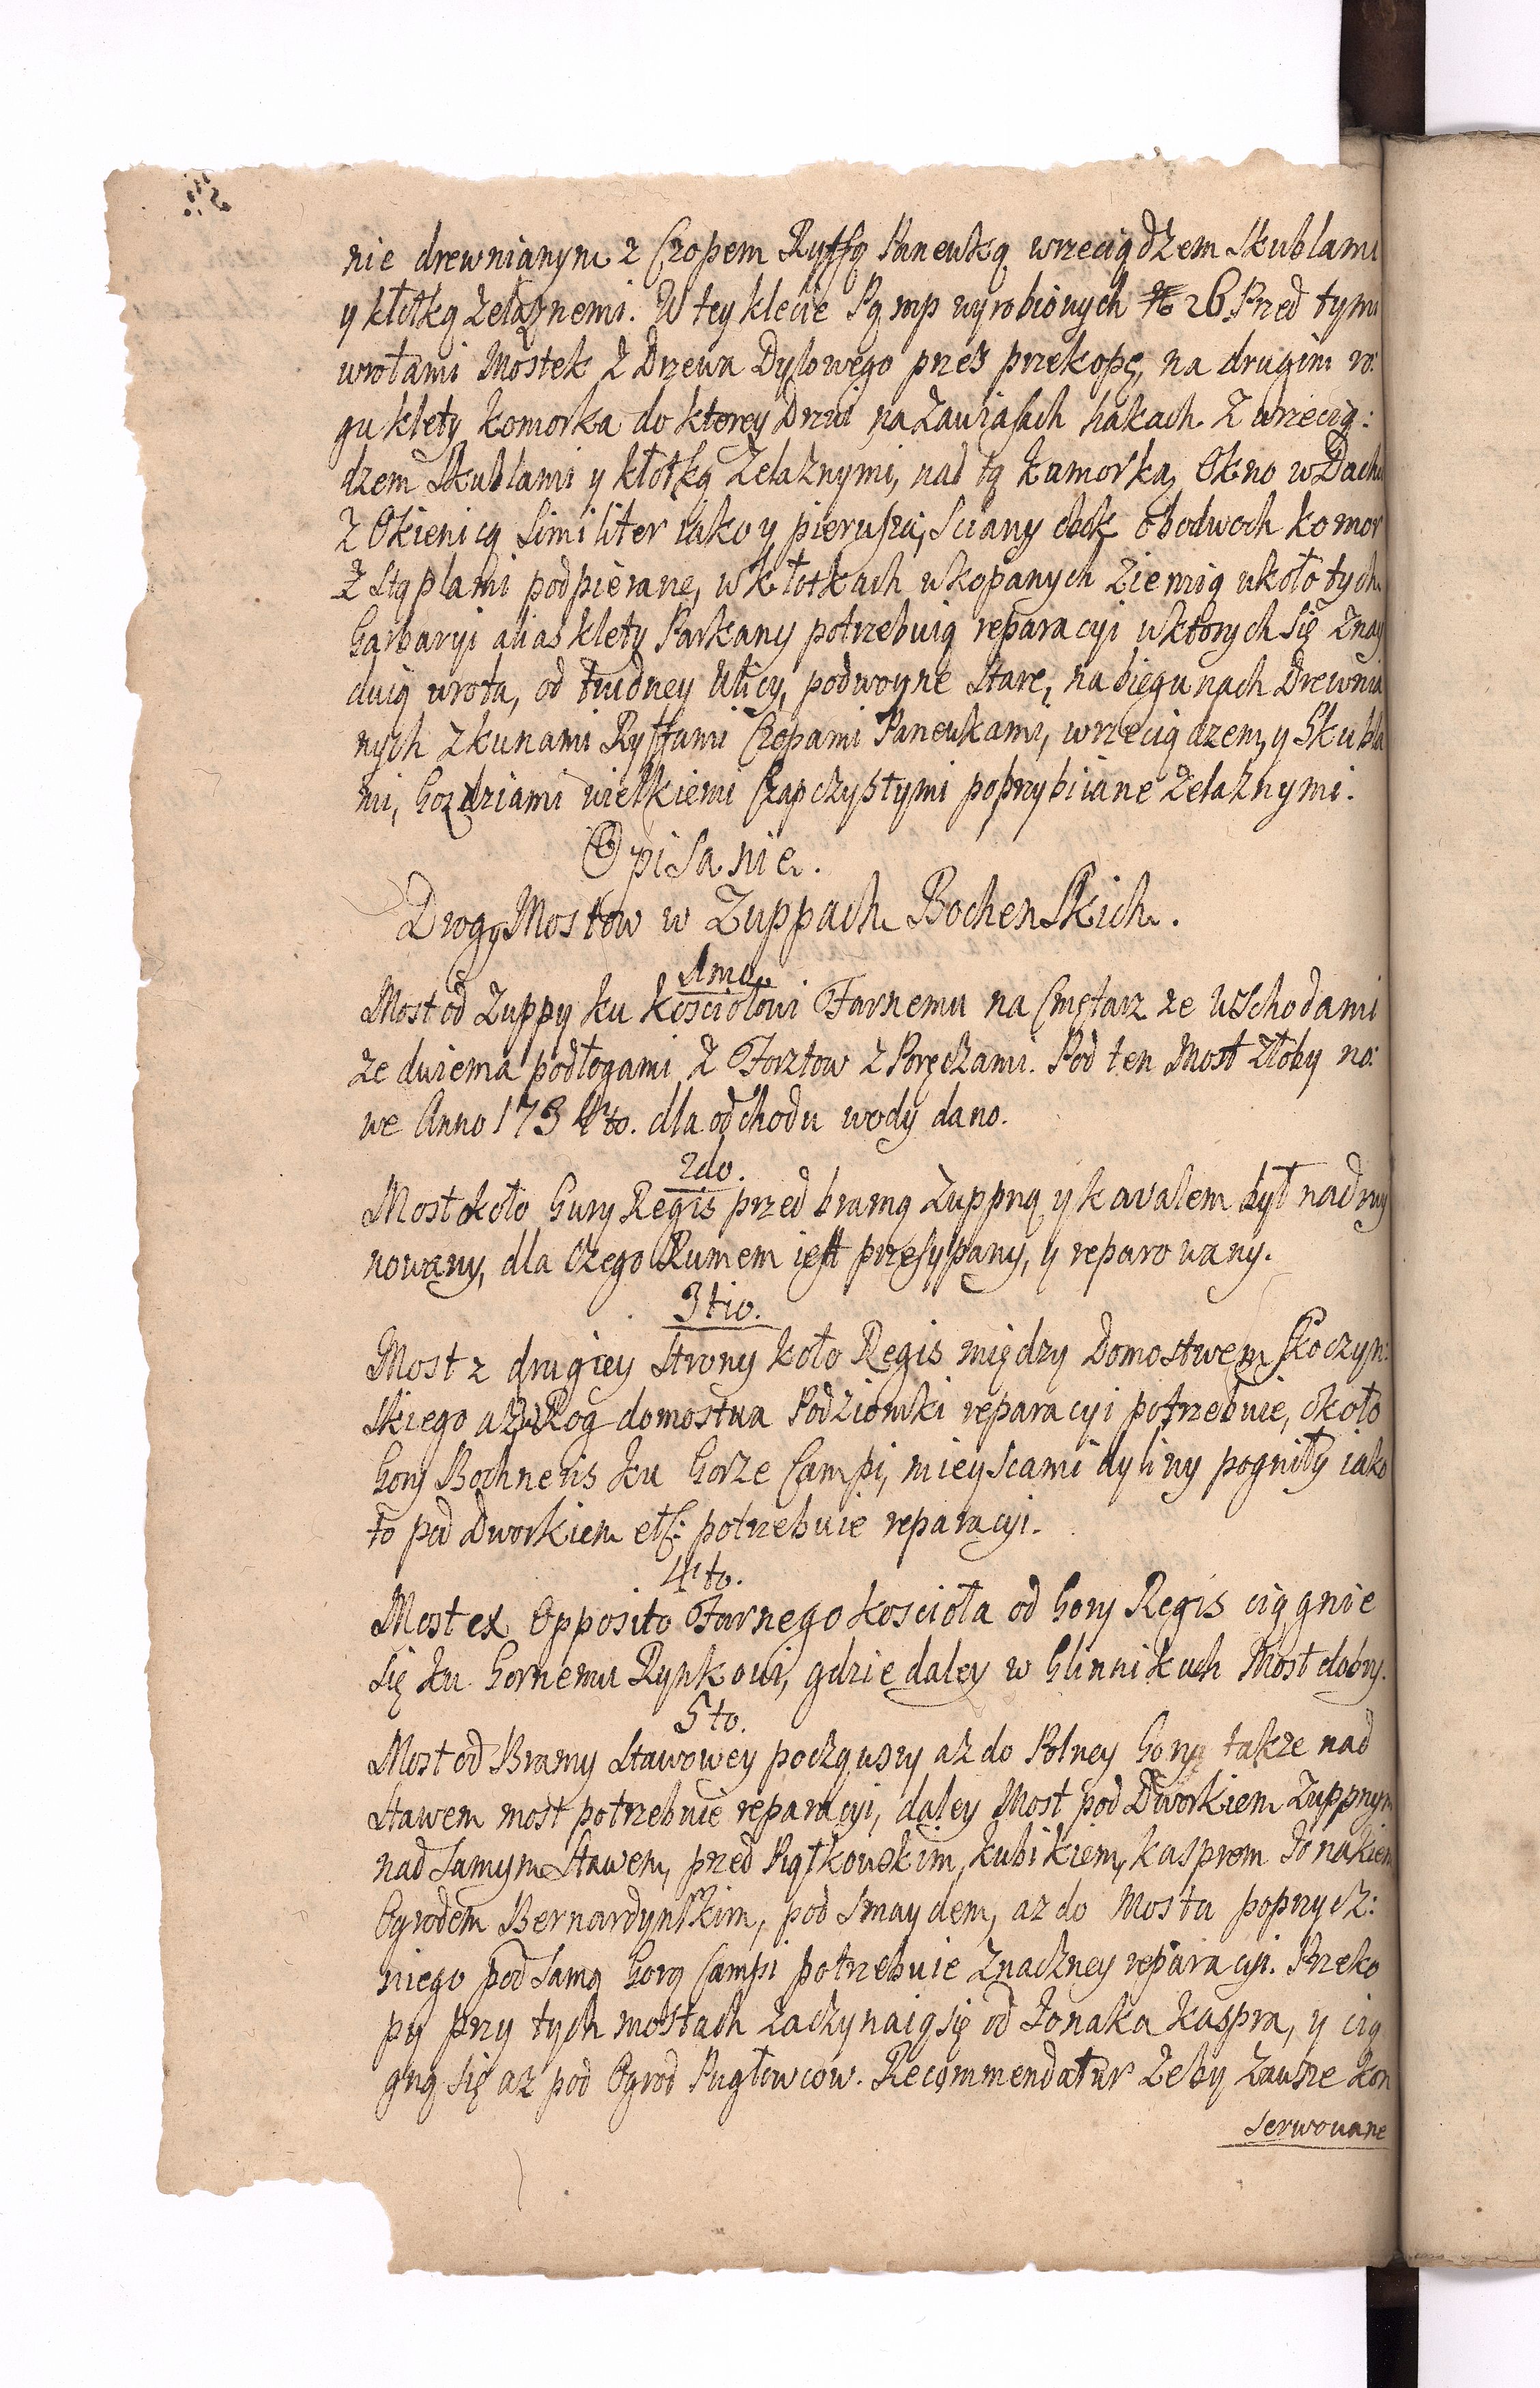 nie drewnianym z Czopem Ryffą Panewką wrzeciądzem Skublami
y kłotką żelaznemi. W tey klecie Pąmp wyrobionych No 26 Przed tymi
wrotami Mostek z Drzewa Dylowego przes przekopę, na drugim ro:
gu klety komorka do ktorey Drzwi na zawiasach hakach z wrzecią:
dzem Skublami y kłotką Żelaznymi, nad tą kamorką Okno w Dachu
z Okienicą Similiter iako y pierwszą; Sciany obok obodwoch komor
z Stąplami podpierane, w kłotkach wkopanych Ziemią wkoło tych
Garbaryi alias klety Parkany potrzebuią reparacyi w ktorych Się Znay
duią wrota, od Trudney Ulicy, podwoyne Stare, na biegunach Drewnia
nych z kunami Ryffami Czopami Panewkami, wrzeciądzem, y Skubla
mi, Gozdziami wielkiemi Czapczystymi poprzybiiane Żelaznymi.
Opisanie.
Drog y Mostow w Zuppach Bochenskich.
1mo.
Most od Zuppy ku kosciołowi Farnemu na Cmętarz ze Wschodami
ze dwiema podłogami z Forztow z Poręczami. Pod ten Most Złoby no:
we Anno 1734to. dla odchodu wody dano.
2do.
Most około Gury Regis przed bramą Zuppną y kavalem był nadruy
nowany, dla Czego Rumem iest przesypany, y reparowany.
3tio.
Most z drugiey Strony koło Regis między Domostwem Skoczyn:
skiego aż w Rog domostwa Podziomki reparacyi potrzebuie, około
Gory Bochneris ku Gorze Campi, mieyscami dyliny pogniły iako
to pod Dworkiem etc: potrzebuie reparacyi.
4to.
Most ex Opposito Farnego kosciola od Gory Regis ciągnie
się ku Gornemu Rynkowi, gdzie daley w Glinnikach Most dobry.
5to.
Most od Bramy Stawowey począwszy az do Polney Gory także nad
Stawem most potrzebuie reparacyi, daley Most pod Dworkiem Zuppnym
nad Samym Stawem, przed Piątkowskim, kubikiem, kasprem Jonakiem
Ogrodem Bernardynskim, pod Smaydem, az do Mostu poprzycz:
niego pod Samą Gorą Campi potrzebuie Znaczney reparacyi. Przeko
py przy tych mostach Zaczynaią się od Jonaka kaspra, y cią
gną się az pod Ogrod Pugłowcow. Recommendatur żeby Zawsze kon
serwowane